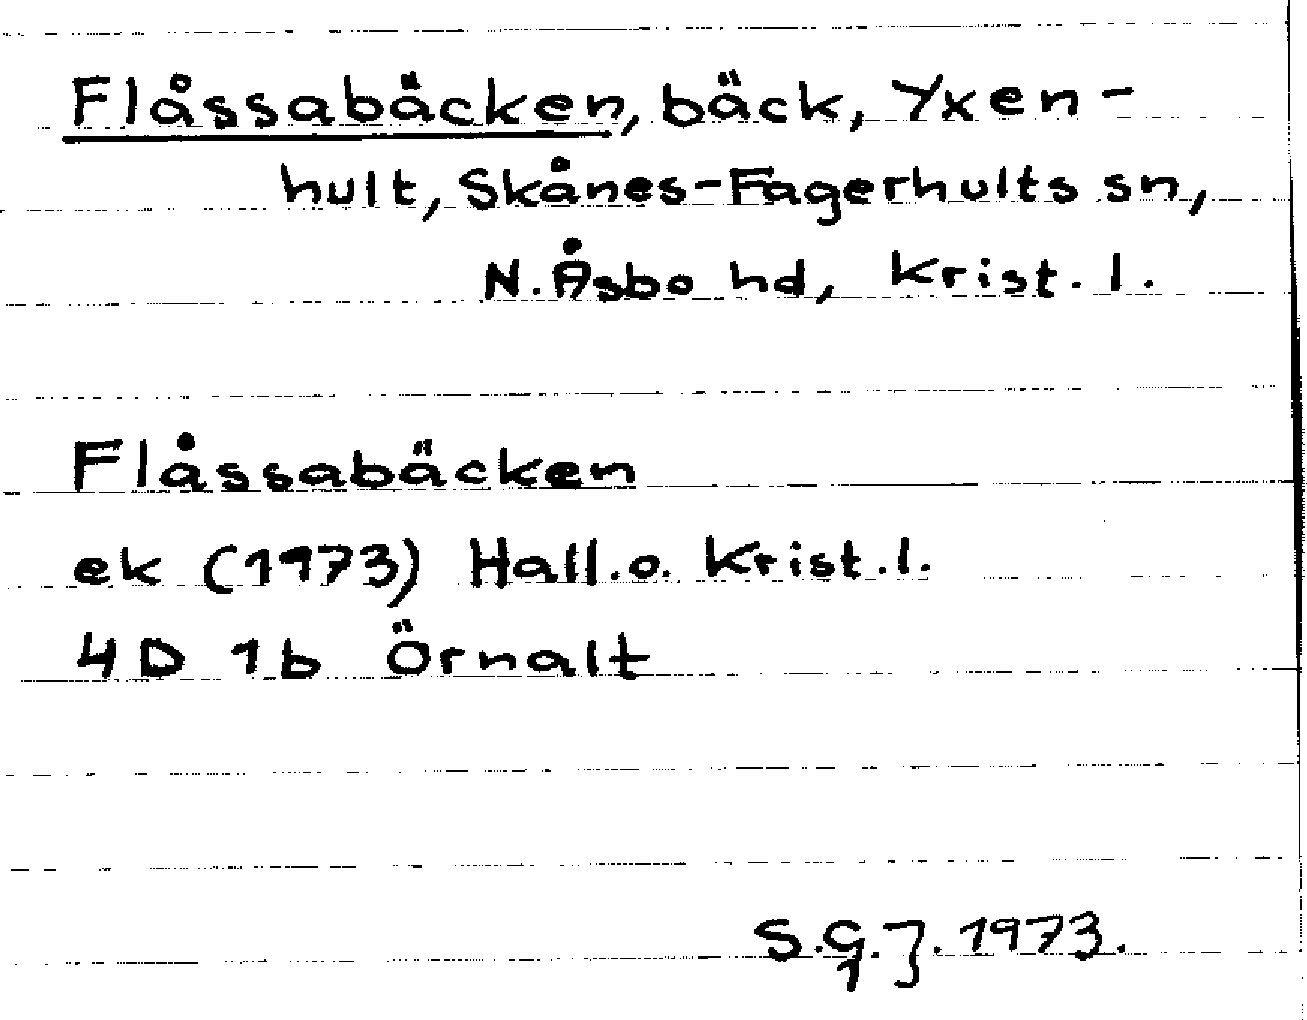 Flåssabäcken, bäck, Yxen-
hult, Skånes-Fagerhults sn,
N. Åsbo hd, Krist. l.
Flåssabäcken
ek (1973) Hall. o. Krist. l.
4D 1b Örnalt
S.G.J. 1973.